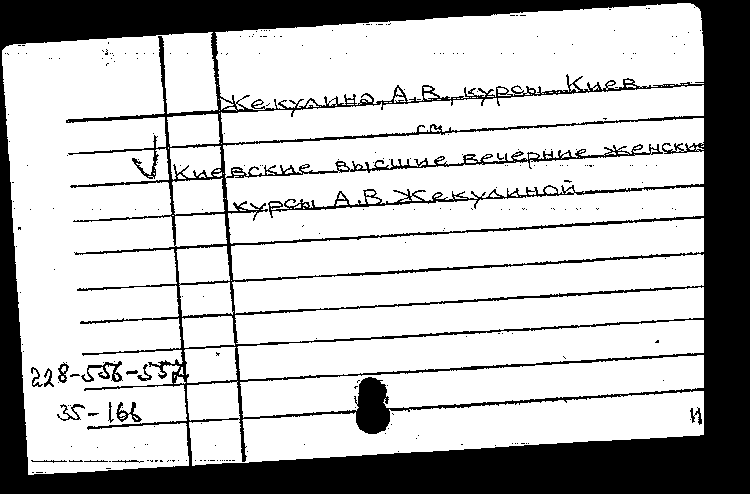 Жекулина, А.В., курсы. Киев
см.
Киевские высшие вечерние женские
курсы А.В. Жекулиной
228-556-557
35-166